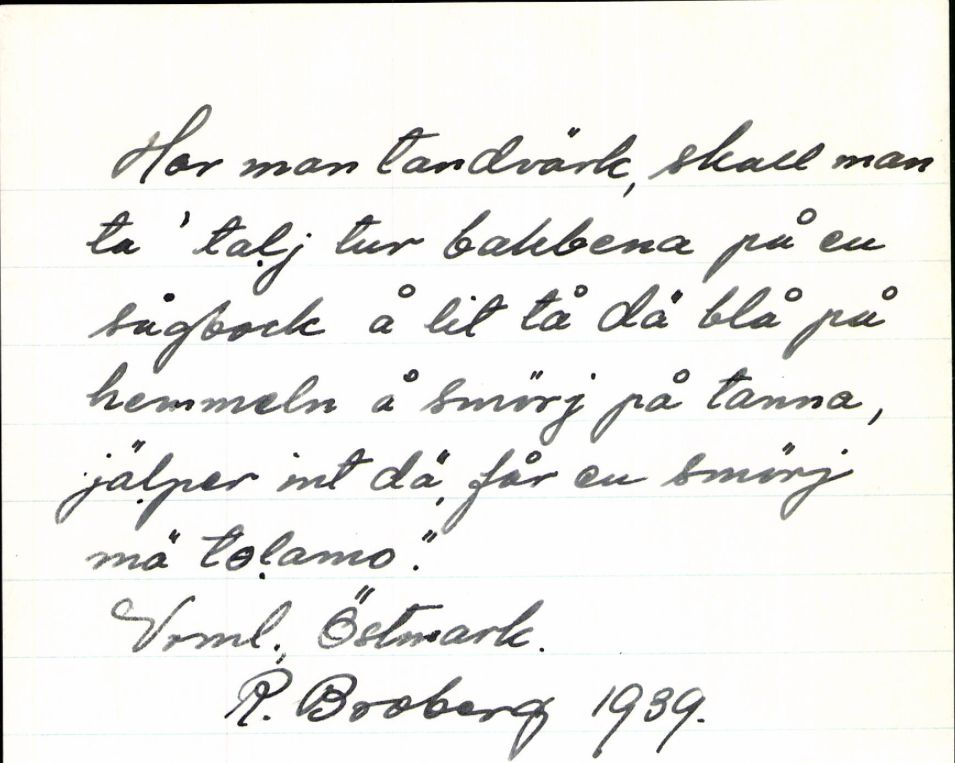 Har man tandvärk, skall man
ta 'taḷj tur bakbena på en
sågbock å lit tå dä blå på
hemmeln å smörj på tanna,
jäḷper int dä, får en smörj
mä toḷamo."
Vrml., Östmark.
R. Broberg 1939.